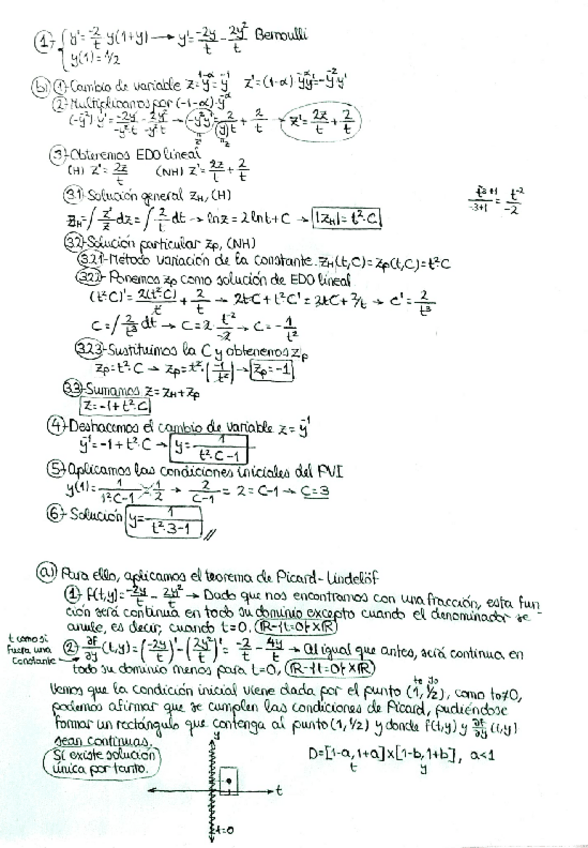 ① { y' = -2/t y(1+y) → y' = -2y/t - 2y²/t Bernoulli
y(1) = 1/2
b) ①-Cambio de variable z = y^(1-α) = y^-1 z' = (1-α) y^-α y' = -y^-2 y'
②-Multiplicamos por (-1-α)·y^-α
(-y^-2) y' = -2y/-y²·t - 2y²/-y²t → -y^-2 y' = 2/(y)t + 2/t → z' = 2z/t + 2/t
③-Obtenemos EDO lineal
(H) z' = 2z/t (NH) z' = 2z/t + 2/t
3.1-Solución general z_H, (H)
z_H = ∫ z'/z dz = ∫ 2/t dt → ln z = 2 ln t + C → |z_H| = t²·C
t^(-3+1)/-3+1 = t^-2/-2
3.2-Solución particular z_p, (NH)
3.2.1-Método variación de la constante. z_H(t,C) = z_p(t,C) = t²C
3.2.2-Ponemos z_p como solución de EDO lineal
(t²·C)' = 2(t²·C)/t + 2/t → 2tC + t²C' = 2tC + 2/t → C' = 2/t³
C = ∫ 2/t³ dt → C = 2·t^-2/-2 → C = -1/t²
3.2.3-Sustituimos la C y obtenemos z_p
z_p = t²·C → z_p = t²·(-1/t²) → z_p = -1
3.3-Sumamos z = z_H + z_p
z = -1 + t²·C
④-Deshacemos el cambio de variable z = y^-1
y^-1 = -1 + t²·C → y = 1/t²·C-1
⑤-Aplicamos las condiciones iniciales del PVI
y(1) = 1/1²C-1 = 1/2 → 2/C-1 = 2 = C-1 → C = 3
⑥-Solución y = 1/t²·3-1 //
a) Para ello, aplicamos el teorema de Picard-Lindelöf
①- f(t,y) = -2y/t - 2y²/t → Dado que nos encontramos con una fracción, esta fun
ción será continua en todo su dominio excepto cuando el denominador se
anule, es decir, cuando t=0. (ℝ-{t=0}×ℝ)
t como si fuera una constante
② ∂f/∂y (t,y) = (-2y/t)' - (2y²/t)' → -2/t - 4y/t → Al igual que antes, será continua en
todo su dominio menos para t=0, (ℝ-{t=0}×ℝ)
t₀ y₀
Vemos que la condición inicial viene dada por el punto (1, 1/2), como t₀≠0,
podemos afirmar que se cumplen las condiciones de Picard, pudiéndose
formar un rectángulo que contenga al punto (1, 1/2) y donde f(t,y) y ∂f/∂y (t,y)
sean continuas.
Sí existe solución
única por tanto.
D = [1-a, 1+a] × [1-b, 1+b], a<1
t y
y
t
t=0